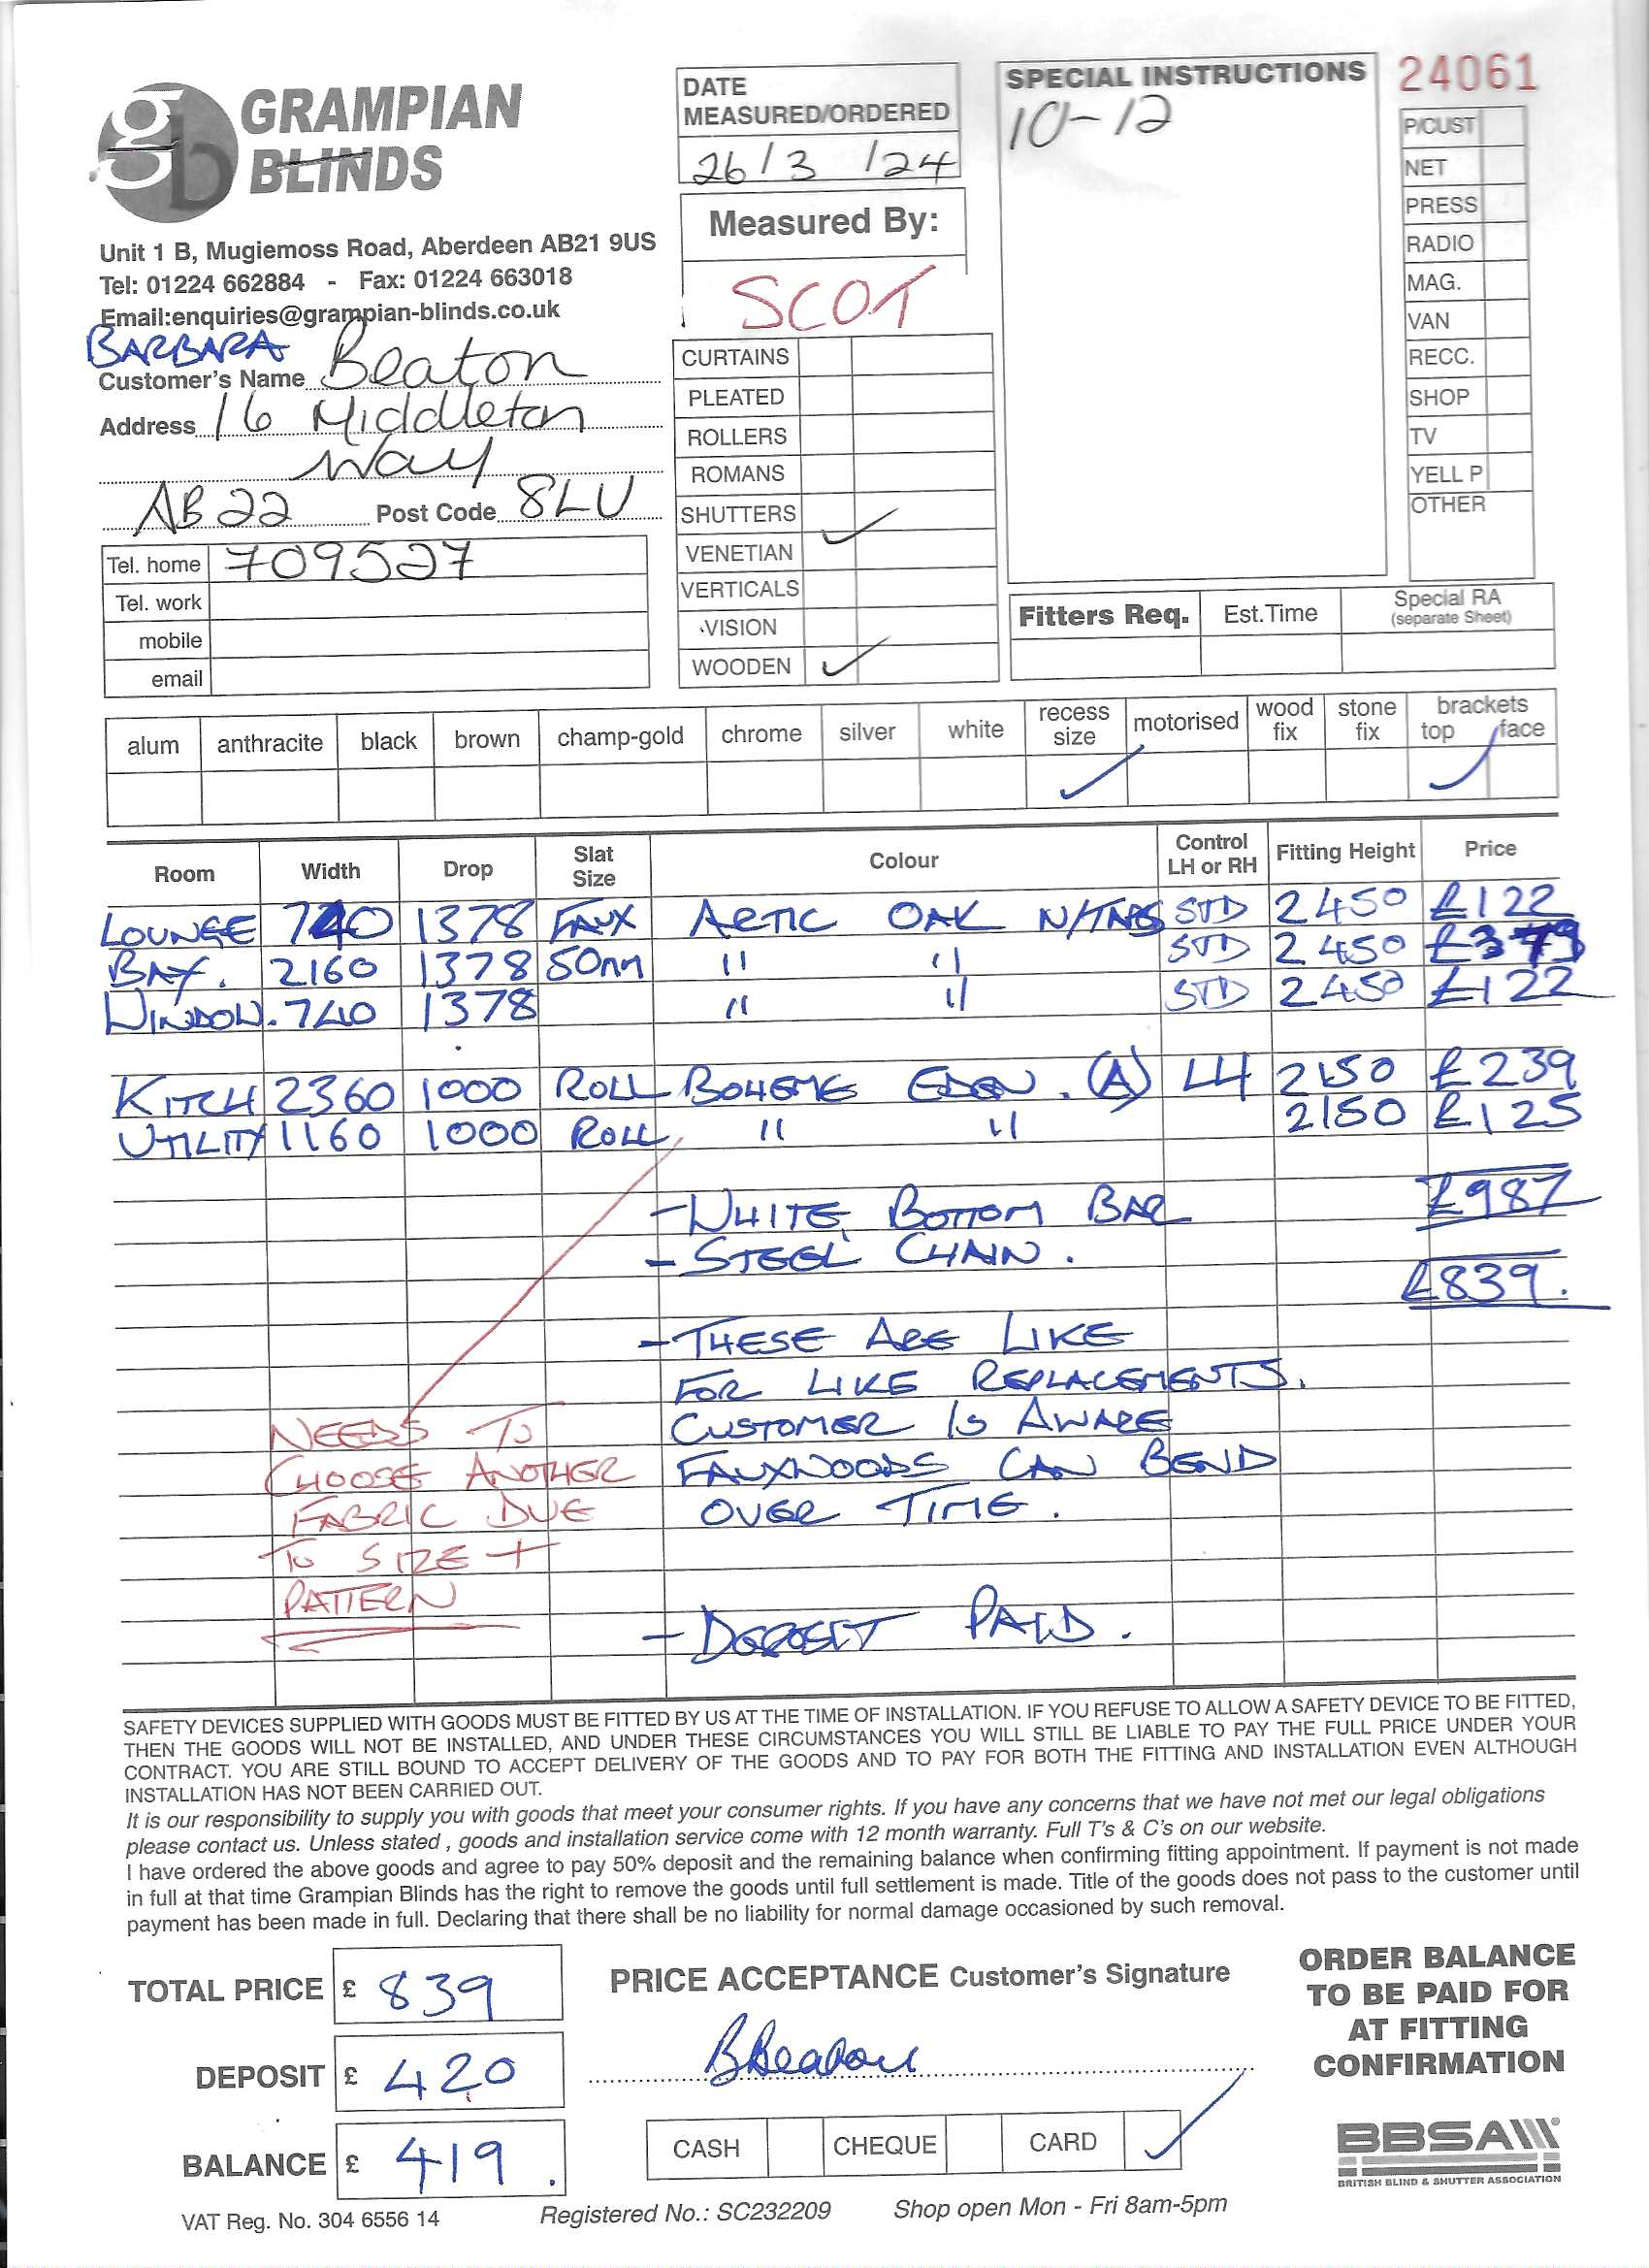 24061
GRAMPIAN
BLINDS
Unit 1 B, Mugiemoss Road, Aberdeen AB21 9US
Tel: 01224 662884 - Fax: 01224 663018
Email:enquiries@grampian-blinds.co.uk
DATE
MEASURED/ORDERED
26/3/24
Measured By:
SCOT
SPECIAL INSTRUCTIONS
10-12
P/CUST
NET
PRESS
RADIO
MAG.
VAN
RECC.
SHOP
TV
YELL P
OTHER
BARBARA
Customer's Name Beaton
Address 16 Middleton
Way
AB22 Post Code 8LU
Tel. home 709527
Tel. work
mobile
email
CURTAINS
PLEATED
ROLLERS
ROMANS
SHUTTERS
VENETIAN
VERTICALS
VISION
WOODEN
Fitters Req. Est.Time Special RA
(separate Sheet)
alum anthracite black brown champ-gold chrome silver white recess size motorised wood fix stone fix brackets top face
Room Width Drop Slat Size Colour Control LH or RH Fitting Height Price
LOUNGE 740 1378 FAUX ARTIC OAK N/TAPS STD 2450 £122
BAY. 2160 1378 50mm " " STD 2450 £379
WINDOW. 740 1378 " " STD 2450 £122
KITCH 2360 1000 ROLL BOHEME EDEN. (A) LH 2150 £239
UTILITY 1160 1000 ROLL " " 2150 £125
- WHITE BOTTOM BAR £987
- STEEL CHAIN.
£839.
- THESE ARE LIKE
FOR LIKE REPLACEMENTS.
CUSTOMER IS AWARE
FAUXWOODS CAN BEND
OVER TIME.
NEEDS TO
CHOOSE ANOTHER
FABRIC DUE
TO SIZE +
PATTERN
- DEPOSIT PAID.
SAFETY DEVICES SUPPLIED WITH GOODS MUST BE FITTED BY US AT THE TIME OF INSTALLATION. IF YOU REFUSE TO ALLOW A SAFETY DEVICE TO BE FITTED,
THEN THE GOODS WILL NOT BE INSTALLED, AND UNDER THESE CIRCUMSTANCES YOU WILL STILL BE LIABLE TO PAY THE FULL PRICE UNDER YOUR
CONTRACT. YOU ARE STILL BOUND TO ACCEPT DELIVERY OF THE GOODS AND TO PAY FOR BOTH THE FITTING AND INSTALLATION EVEN ALTHOUGH
INSTALLATION HAS NOT BEEN CARRIED OUT.
It is our responsibility to supply you with goods that meet your consumer rights. If you have any concerns that we have not met our legal obligations
please contact us. Unless stated , goods and installation service come with 12 month warranty. Full T's & C's on our website.
I have ordered the above goods and agree to pay 50% deposit and the remaining balance when confirming fitting appointment. If payment is not made
in full at that time Grampian Blinds has the right to remove the goods until full settlement is made. Title of the goods does not pass to the customer until
payment has been made in full. Declaring that there shall be no liability for normal damage occasioned by such removal.
TOTAL PRICE £ 839
DEPOSIT £ 420
BALANCE £ 419.
PRICE ACCEPTANCE Customer's Signature
BBeaton
CASH CHEQUE CARD
ORDER BALANCE
TO BE PAID FOR
AT FITTING
CONFIRMATION
BBSA
BRITISH BLIND & SHUTTER ASSOCIATION
VAT Reg. No. 304 6556 14 Registered No.: SC232209 Shop open Mon - Fri 8am-5pm